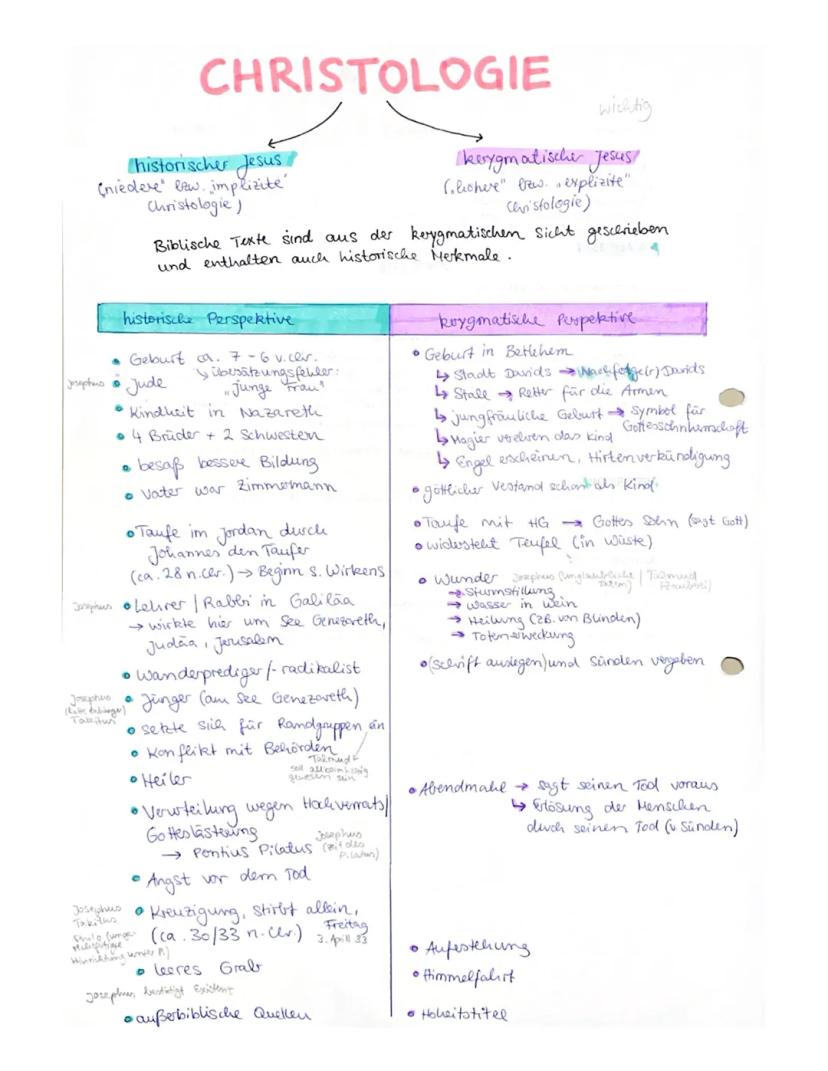 CHRISTOLOGIE
wichtig
historischer Jesus
("niedere" bzw. "implizite"
Christologie)
kerygmatischer Jesus
("hohere" bzw. "explizite"
Christologie)
Biblische Texte sind aus der kerygmatischen Sicht geschrieben
und enthalten auch historische Merkmale.
historische Perspektive
• Geburt ca. 7-6 v. Chr.
↳ übersätzungsfehler:
"junge Frau"
Josephus
• Jude
• Kindheit in Nazareth
• 4 Brüder + 2 Schwestern
• besaß bessere Bildung
• Vater war Zimmermann
• Taufe im Jordan durch
Johannes den Täufer
(ca. 28 n. Chr.) → Beginn s. Wirkens
Josephus
• Lehrer / Rabbi in Galiläa
→ wirkte hier um See Genezareth,
Judäa, Jerusalem
• Wanderprediger /-radikalist
Josephus
Takitus
• Jünger (am See Genezareth)
• setzte sich für Randgruppen ein
• Konflikt mit Behörden
Talmud
soll
gewesen sein
• Heiler
• Verurteilung wegen Hochverrats/
Gotteslästerung
→ Pontius Pilatus
Josephus
(Zeit des
Pilatus)
• Angst vor dem Tod
Josephus
Takitus
Philo
Hinrichtung unter P.)
• Kreuzigung, stirbt allein,
(ca. 30/33 n. Chr.)
Freitag
3. April 33
• leeres Grab
Josephus bestätigt Existenz
• außerbiblische Quellen
kerygmatische Perspektive
• Geburt in Betlehem
↳ Stadt Davids → Nachfolge(r) Davids
↳ Stall → Retter für die Armen
↳ jungfräuliche Geburt → Symbol für
Gottessohnherrschaft
↳ Magier verehren das Kind
↳ Engel erscheinen, Hirtenverkündigung
• göttlicher Verstand schon als Kind
• Taufe mit HG → Gottes Sohn (sagt Gott)
• widersteht Teufel (in Wüste)
• Wunder Josephus (unglaubliche Taten) | Talmud (Zauberei)
→ Sturmstillung
→ Wasser in Wein
→ Heilung (zB. von Blinden)
→ Totenerweckung
• (Schrift auslegen) und Sünden vergeben
• Abendmahl → sagt seinen Tod voraus
↳ Erlösung der Menschen
durch seinen Tod (v Sünden)
• Auferstehung
• Himmelfahrt
• Hoheitstitel